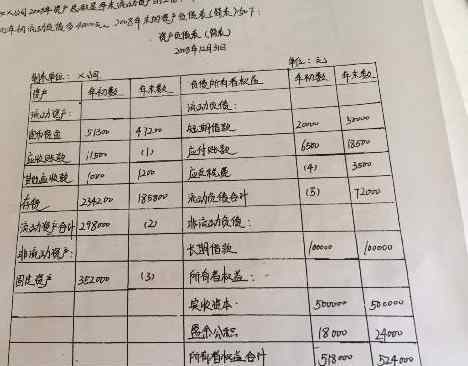 公司2008年资产总额是年末流动资产的
的年初流动负债多4000元。2008年末的资产负债表(简表)如下:
资产负债表(简表)
2008年12月31日
制表单位: ×公司 单位:元
资产 年初数 年末数 负债所有者权益 年初数 年末数
流动资产: 流动负债:
货币资金 51300 47200 短期借款 20000 50000
应收账款 11500 (1) 应付账款 6500 18500
其他应收款 1000 1200 应交税费 (4) 3500
存货 234200 185800 流动负债合计 (5) 72000
流动资产合计 298000 (2) 非流动负债:
非流动资产: 长期借款 100000 100000
固定资产 352000 (3) 所有者权益:
实收资本: 500000 500000
盈余公积 18000 24000
所有者权益合计 518000 524000